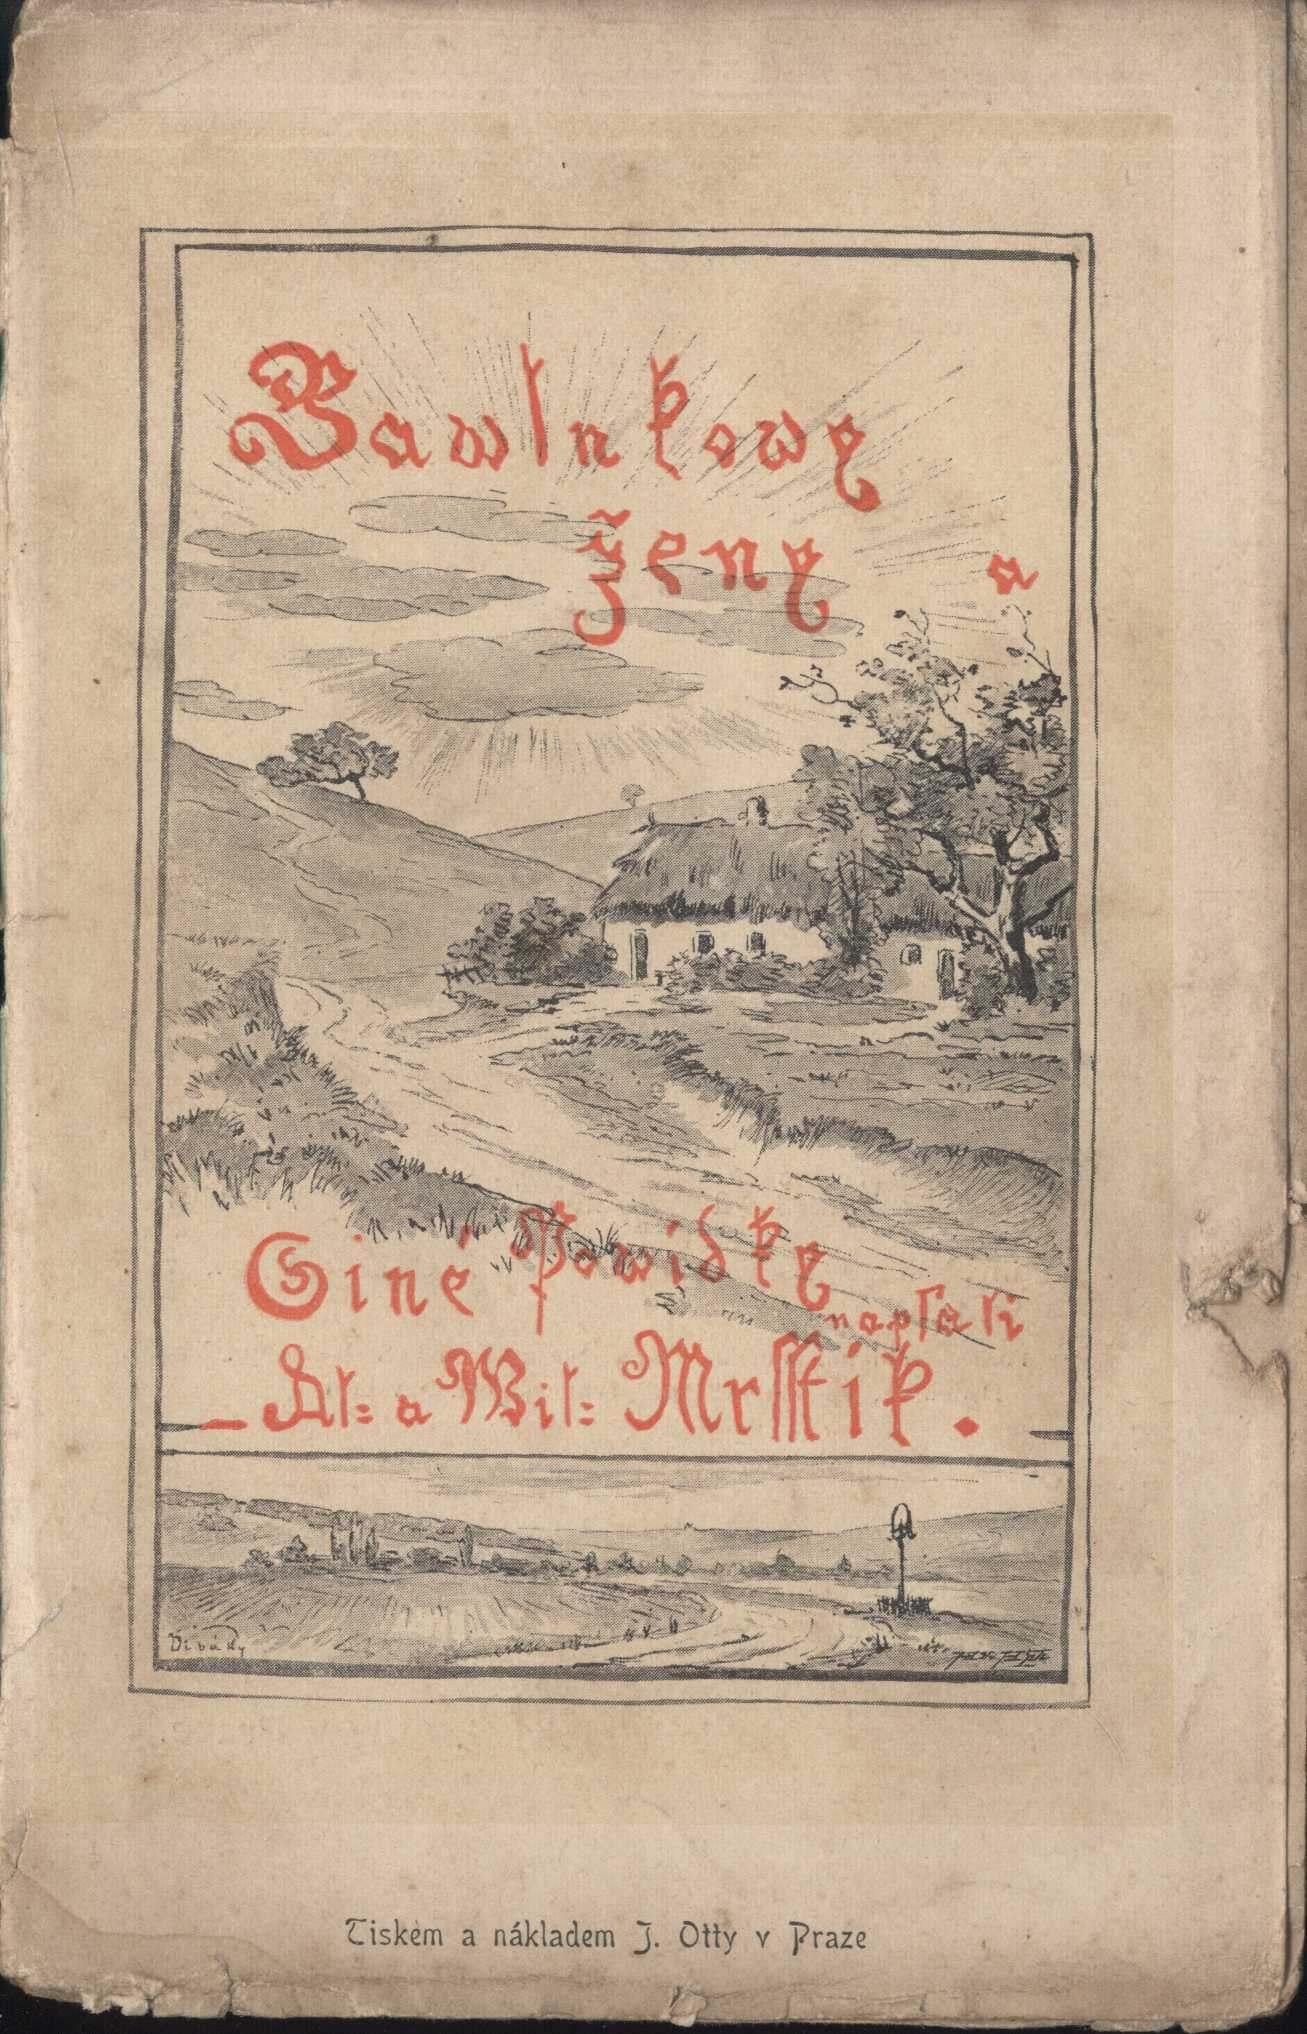 Bawlnkowy
ženy a
Giné Powídky
napsali
Al= a Wil= Mrsstik.
Diváky
Tiskem a nákladem J. Otty v Praze